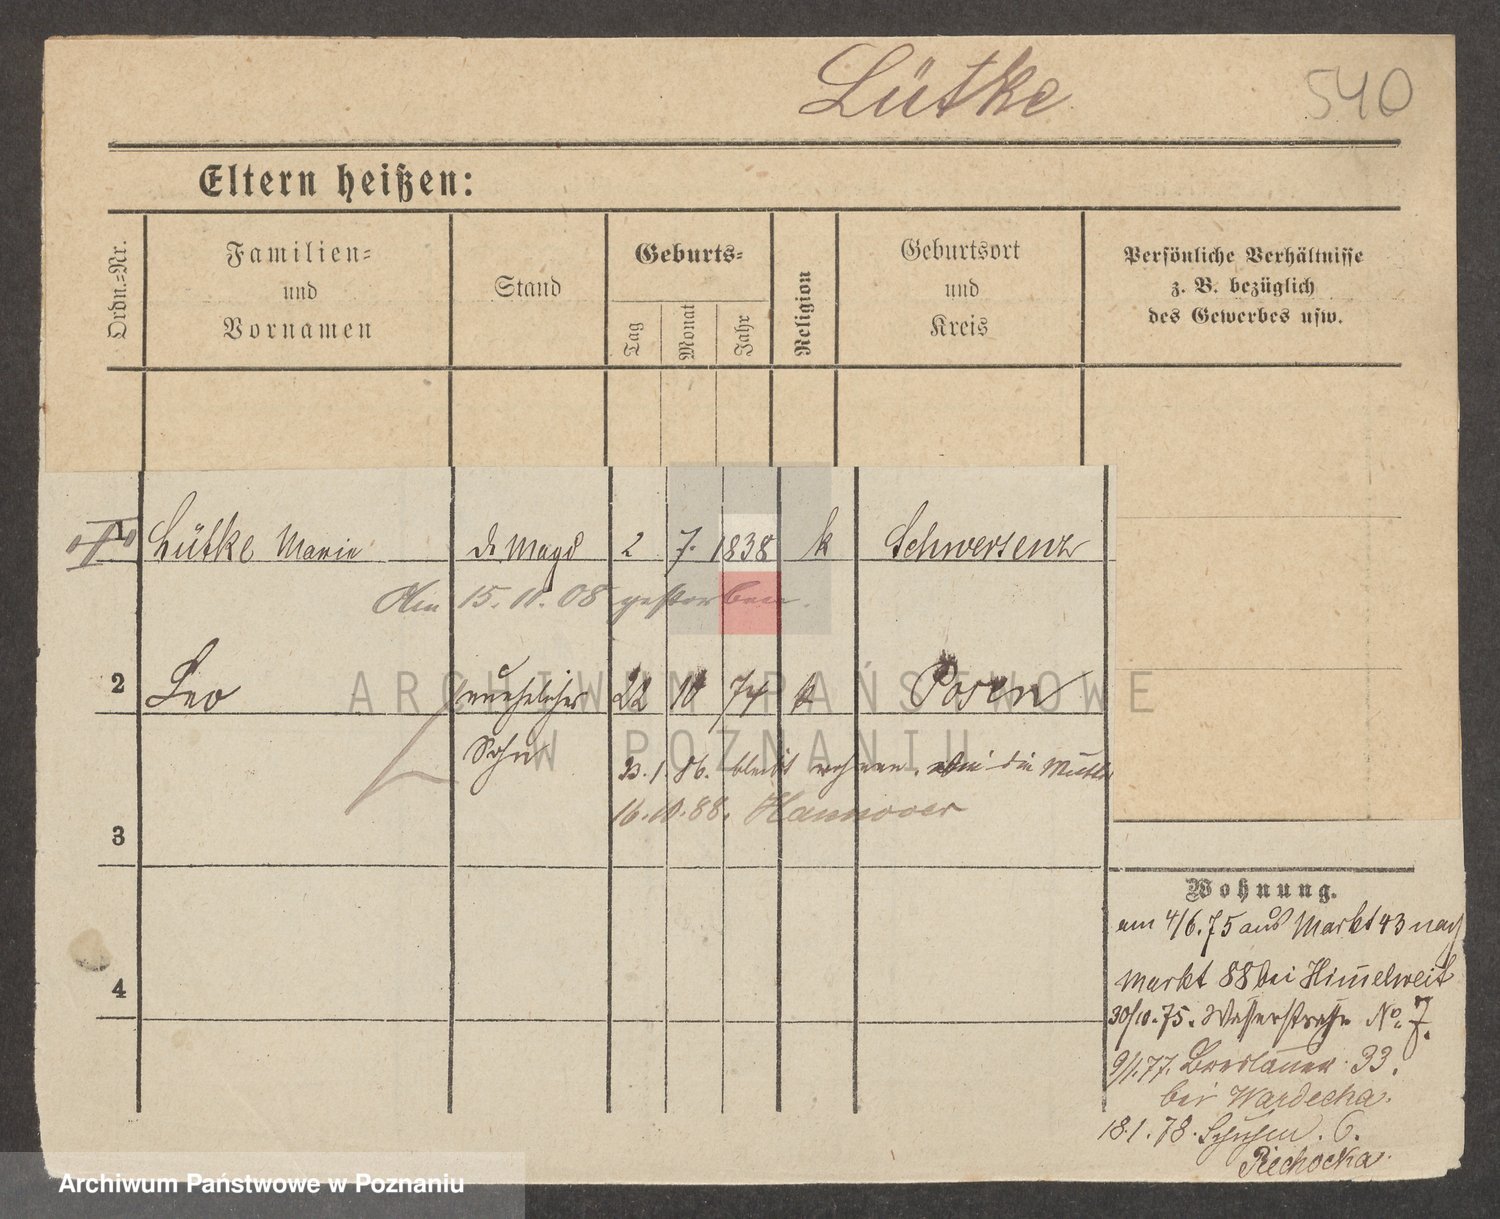 Lütke 540
Eltern heißen:
Ordn.-Nr.
Familien-
und
Vornamen
Stand
Geburts-
Tag
Monat
Jahr
Religion
Geburtsort
und
Kreis
Persönliche Verhältnisse
z. B. bezüglich
des Gewerbes usw.
1 Lütke Marie d. Magd 2 7. 1838 k Schwersenz
Am 15. 11. 08 gestorben.
2 Leo unehelicher 22 10 74 k Posen
Sohn
23. 1. 86. bleibt wohnen, die Mutter
16.10.88. Hannover
3
4
Wohnung.
am 4/6.75 aus Markt 43 nach
Markt 88 bei Himelweit
30/10.75. Wasserstraße No. 7.
9/1.77. Breslauer 33.
bei Wardecha.
18.1.78. 6.
Piechocka.
ARCHIWUM PAŃSTWOWE
W POZNANIU
Archiwum Państwowe w Poznaniu